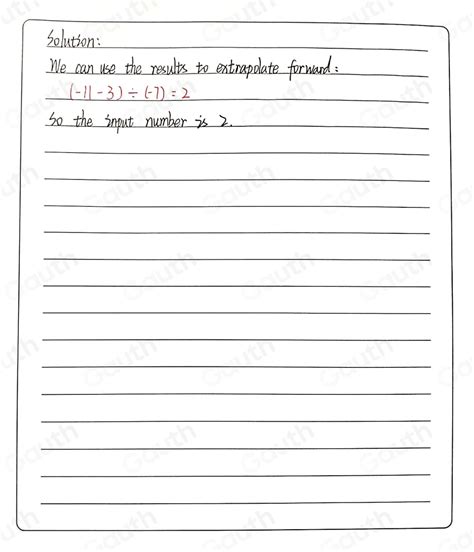 Solution:
We can use the results to extrapolate forward:
(-11-3)÷(-7)=2
So the input number is 2.